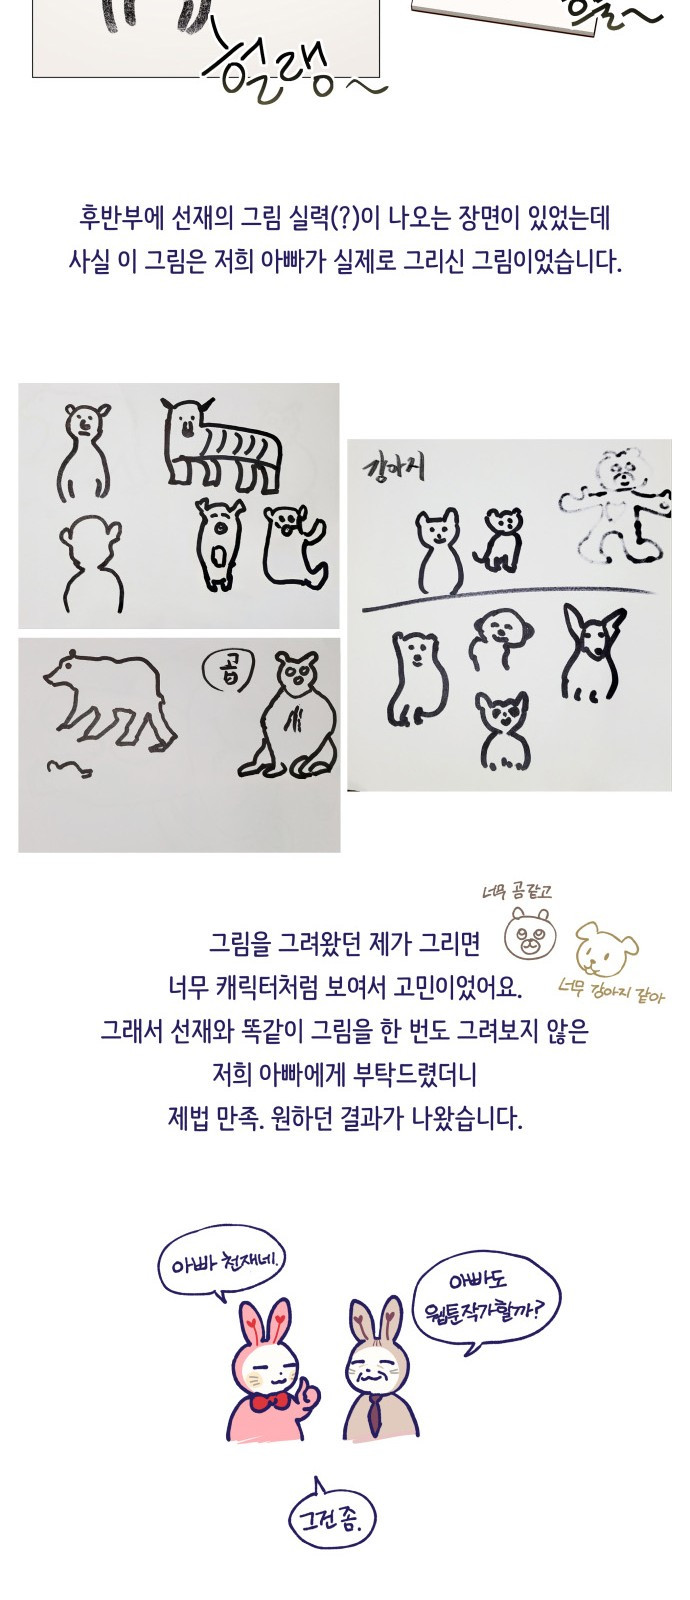 헐랭~
후반부에 선재의 그림 실력(?)이 나오는 장면이 있었는데
사실 이 그림은 저희 아빠가 실제로 그리신 그림이었습니다.
강아지
곰
너무 곰같고
너무 강아지 같아
그림을 그려왔던 제가 그리면
너무 캐릭터처럼 보여서 고민이었어요.
그래서 선재와 똑같이 그림을 한 번도 그려보지 않은
저희 아빠에게 부탁드렸더니
제법 만족. 원하던 결과가 나왔습니다.
아빠 천재네.
아빠도
웹툰작가할까?
그건 좀.